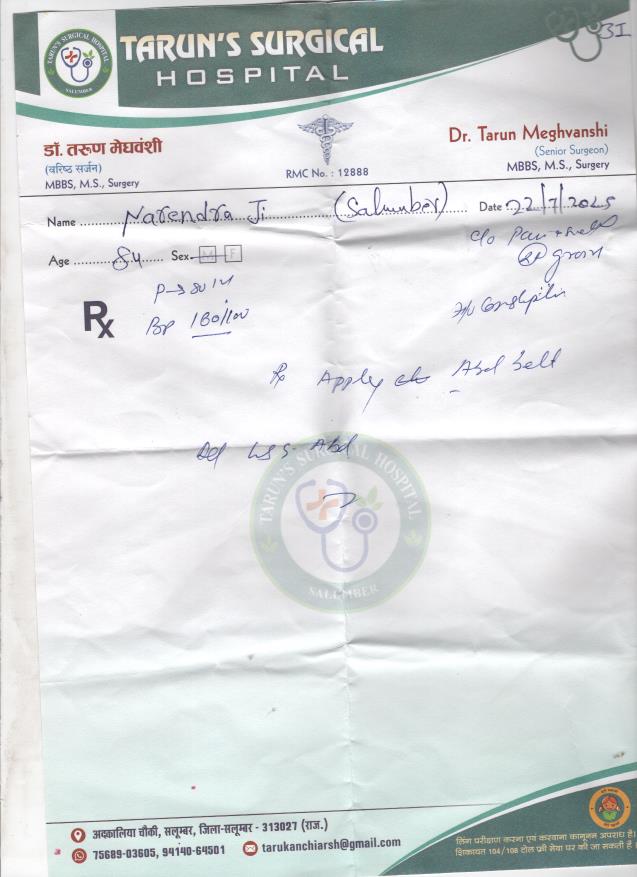 TARUN'S SURGICAL HOSPITAL
SALUMBER
TARUN'S SURGICAL
HOSPITAL
डॉ. तरुण मेघवंशी
(वरिष्ठ सर्जन)
MBBS, M.S., Surgery
RMC No. : 12888
Dr. Tarun Meghvanshi
(Senior Surgeon)
MBBS, M.S., Surgery
Name Narendra Ji (Salumber) Date 22/7/2025
c/o Pain
Age 84 Sex M F
Rx
BP 180/100
Rx Apply Abd belt
USG Abd
TARUN'S SURGICAL HOSPITAL
SALUMBER
अदकालिया चौकी, सलूम्बर, जिला-सलूम्बर - 313027 (राज.)
75689-03605, 94140-64501 tarukanchiarsh@gmail.com
लिंग परीक्षण करना एवं करवाना कानूनन अपराध है।
शिकायत 104/108 टोल फ्री सेवा पर की जा सकती है।